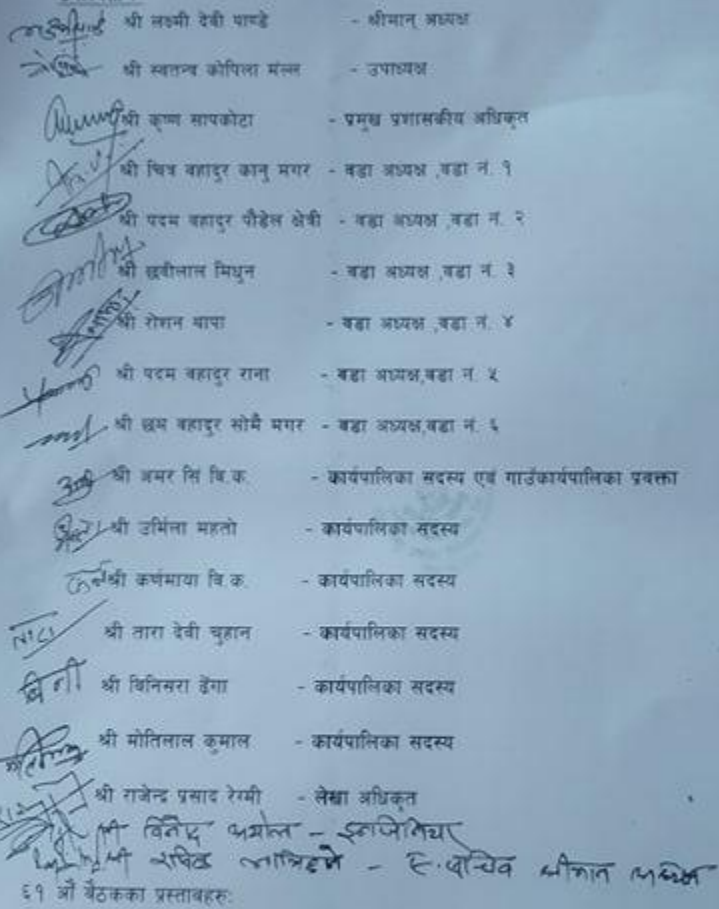 श्री लक्ष्मी देवी पाण्डे - श्रीमान् अध्यक्ष
श्री स्वतन्त्र कोपिला मल्ल - उपाध्यक्ष
श्री कृष्ण सापकोटा - प्रमुख प्रशासकीय अधिकृत
श्री चित्र बहादुर कानु मगर - वडा अध्यक्ष ,वडा नं. १
श्री पदम बहादुर पौडेल क्षेत्री - वडा अध्यक्ष ,वडा नं. २
श्री छवीलाल मिधुन - वडा अध्यक्ष ,वडा नं. ३
श्री रोशन थापा - वडा अध्यक्ष ,वडा नं. ४
श्री पदम बहादुर राना - वडा अध्यक्ष,वडा नं. ५
श्री छम बहादुर सोमै मगर - वडा अध्यक्ष,वडा नं. ६
श्री अमर सिं वि.क. - कार्यपालिका सदस्य एवं गाउँकार्यपालिका प्रवक्ता
श्री उर्मिला महतो - कार्यपालिका सदस्य
श्री कर्णमाया वि.क. - कार्यपालिका सदस्य
तारा श्री तारा देवी चुहान - कार्यपालिका सदस्य
बिनी श्री बिनिसरा ढेंगा - कार्यपालिका सदस्य
श्री मोतिलाल कुमाल - कार्यपालिका सदस्य
श्री राजेन्द्र प्रसाद रेग्मी - लेखा अधिकृत
श्री - इन्जिनियर
श्री - अध्यक्ष
६१ औं बैठकका प्रस्तावहरु: